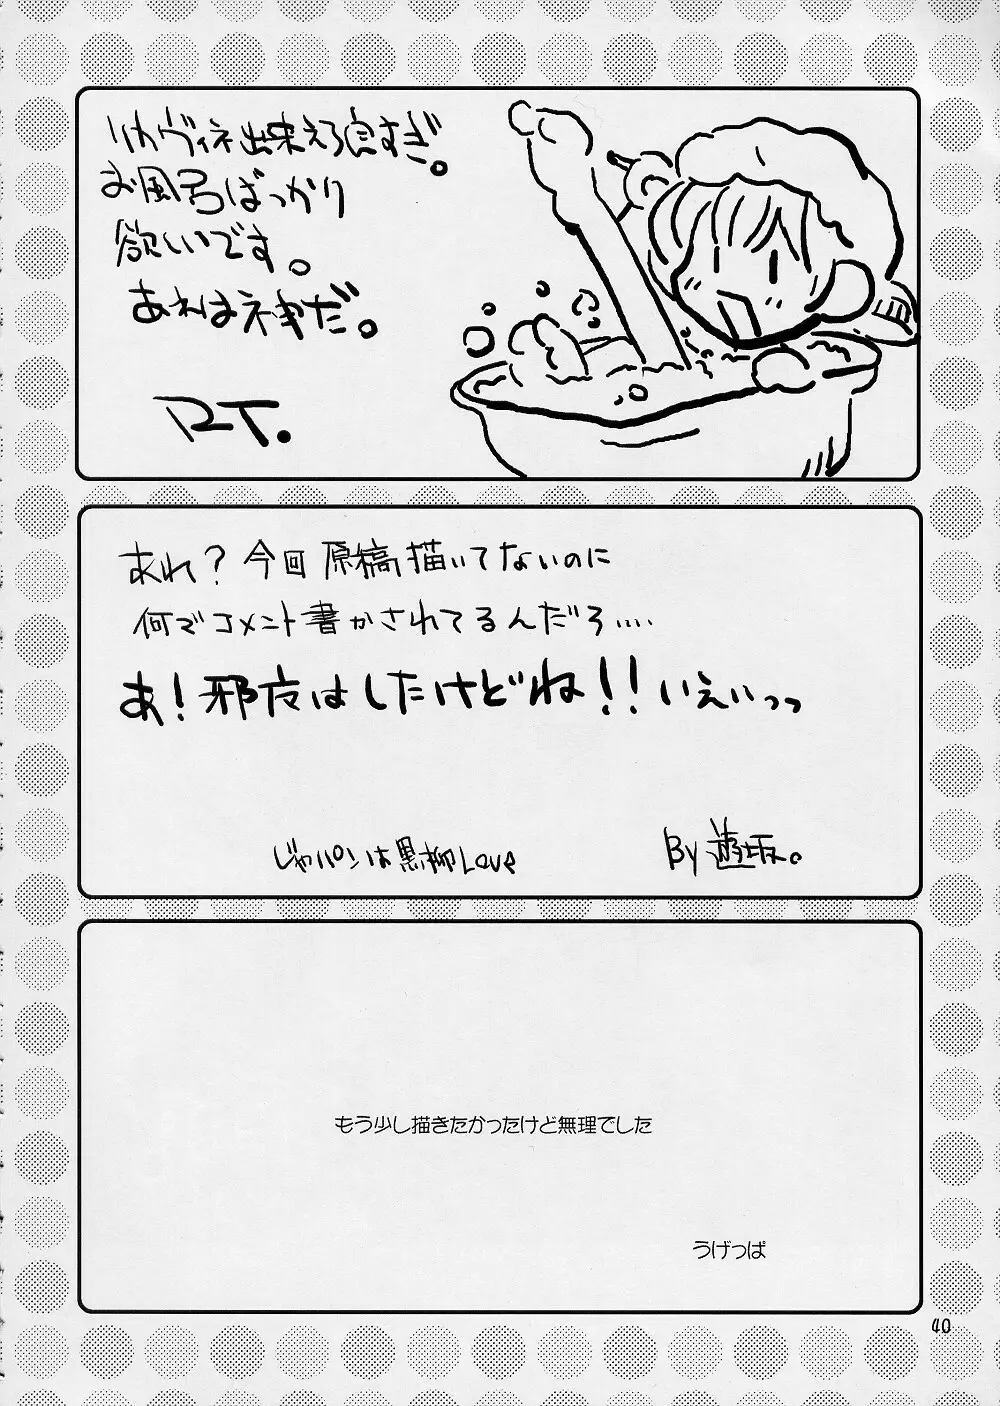 リカヴィネ出来えろ良すぎ。
お風呂ばっかり
欲しいです。
あれは神だ。
RT.
あれ？今回原稿描いてないのに
何でコメント書かされてるんだろ....
あ！邪夜はしたけどね！！いえぃっっ
じゃパンは黒柳Love
By遊坂。
もう少し描きたかったけど無理でした
うげっぱ
40